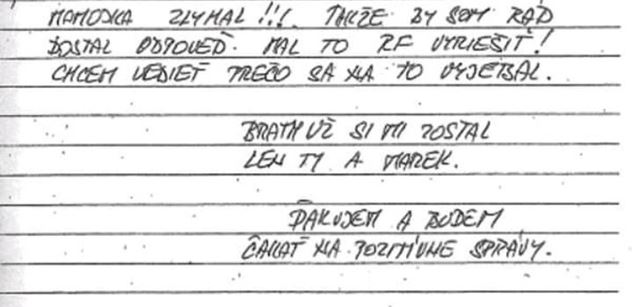 MAMOJKA ZLYHAL!!!. TAKŽE BY SOM RÁD
DOSTAL ODPOVEĎ. MAL TO RF VYRIEŠIŤ!
CHCEM VEDIEŤ PREČO SA NA TO VYJEBAL.
BRATM UŽ SI MI ZOSTAL
LEN TY A MAREK.
ĎAKUJEM A BUDEM
ČAKAŤ NA POZITÍVNE SPRÁVY.